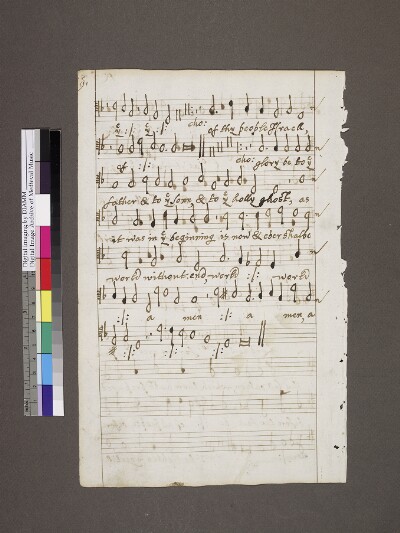 yͤ :/: yͤ :/: cho: of thy people Israell,
of :/: cho: glory be to yͤ
father & to yͤ sonn, & to yͤ holly ghost, as
it was in yͤ beginning is now & ever shalbe
world without end, world :/: world
:/: a men :/: a men, a
:/: :/: :/:
Digital imaging by DIAMM
Digital Image Archive of Medieval Music